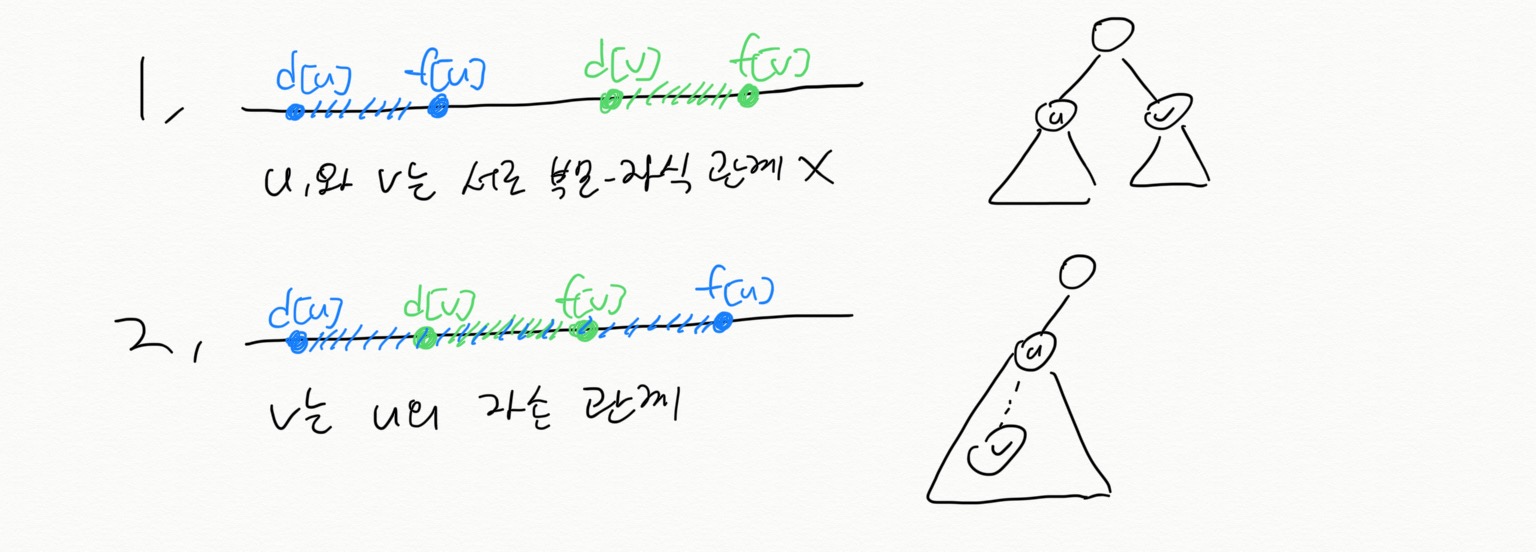 1,
d[u] f[u] d[v] f[v]
u
v
u,와 v는 서로 부모-자식 관계 X
2,
d[u] d[v] f[v] f[u]
u
v는 u의 자손 관계
v